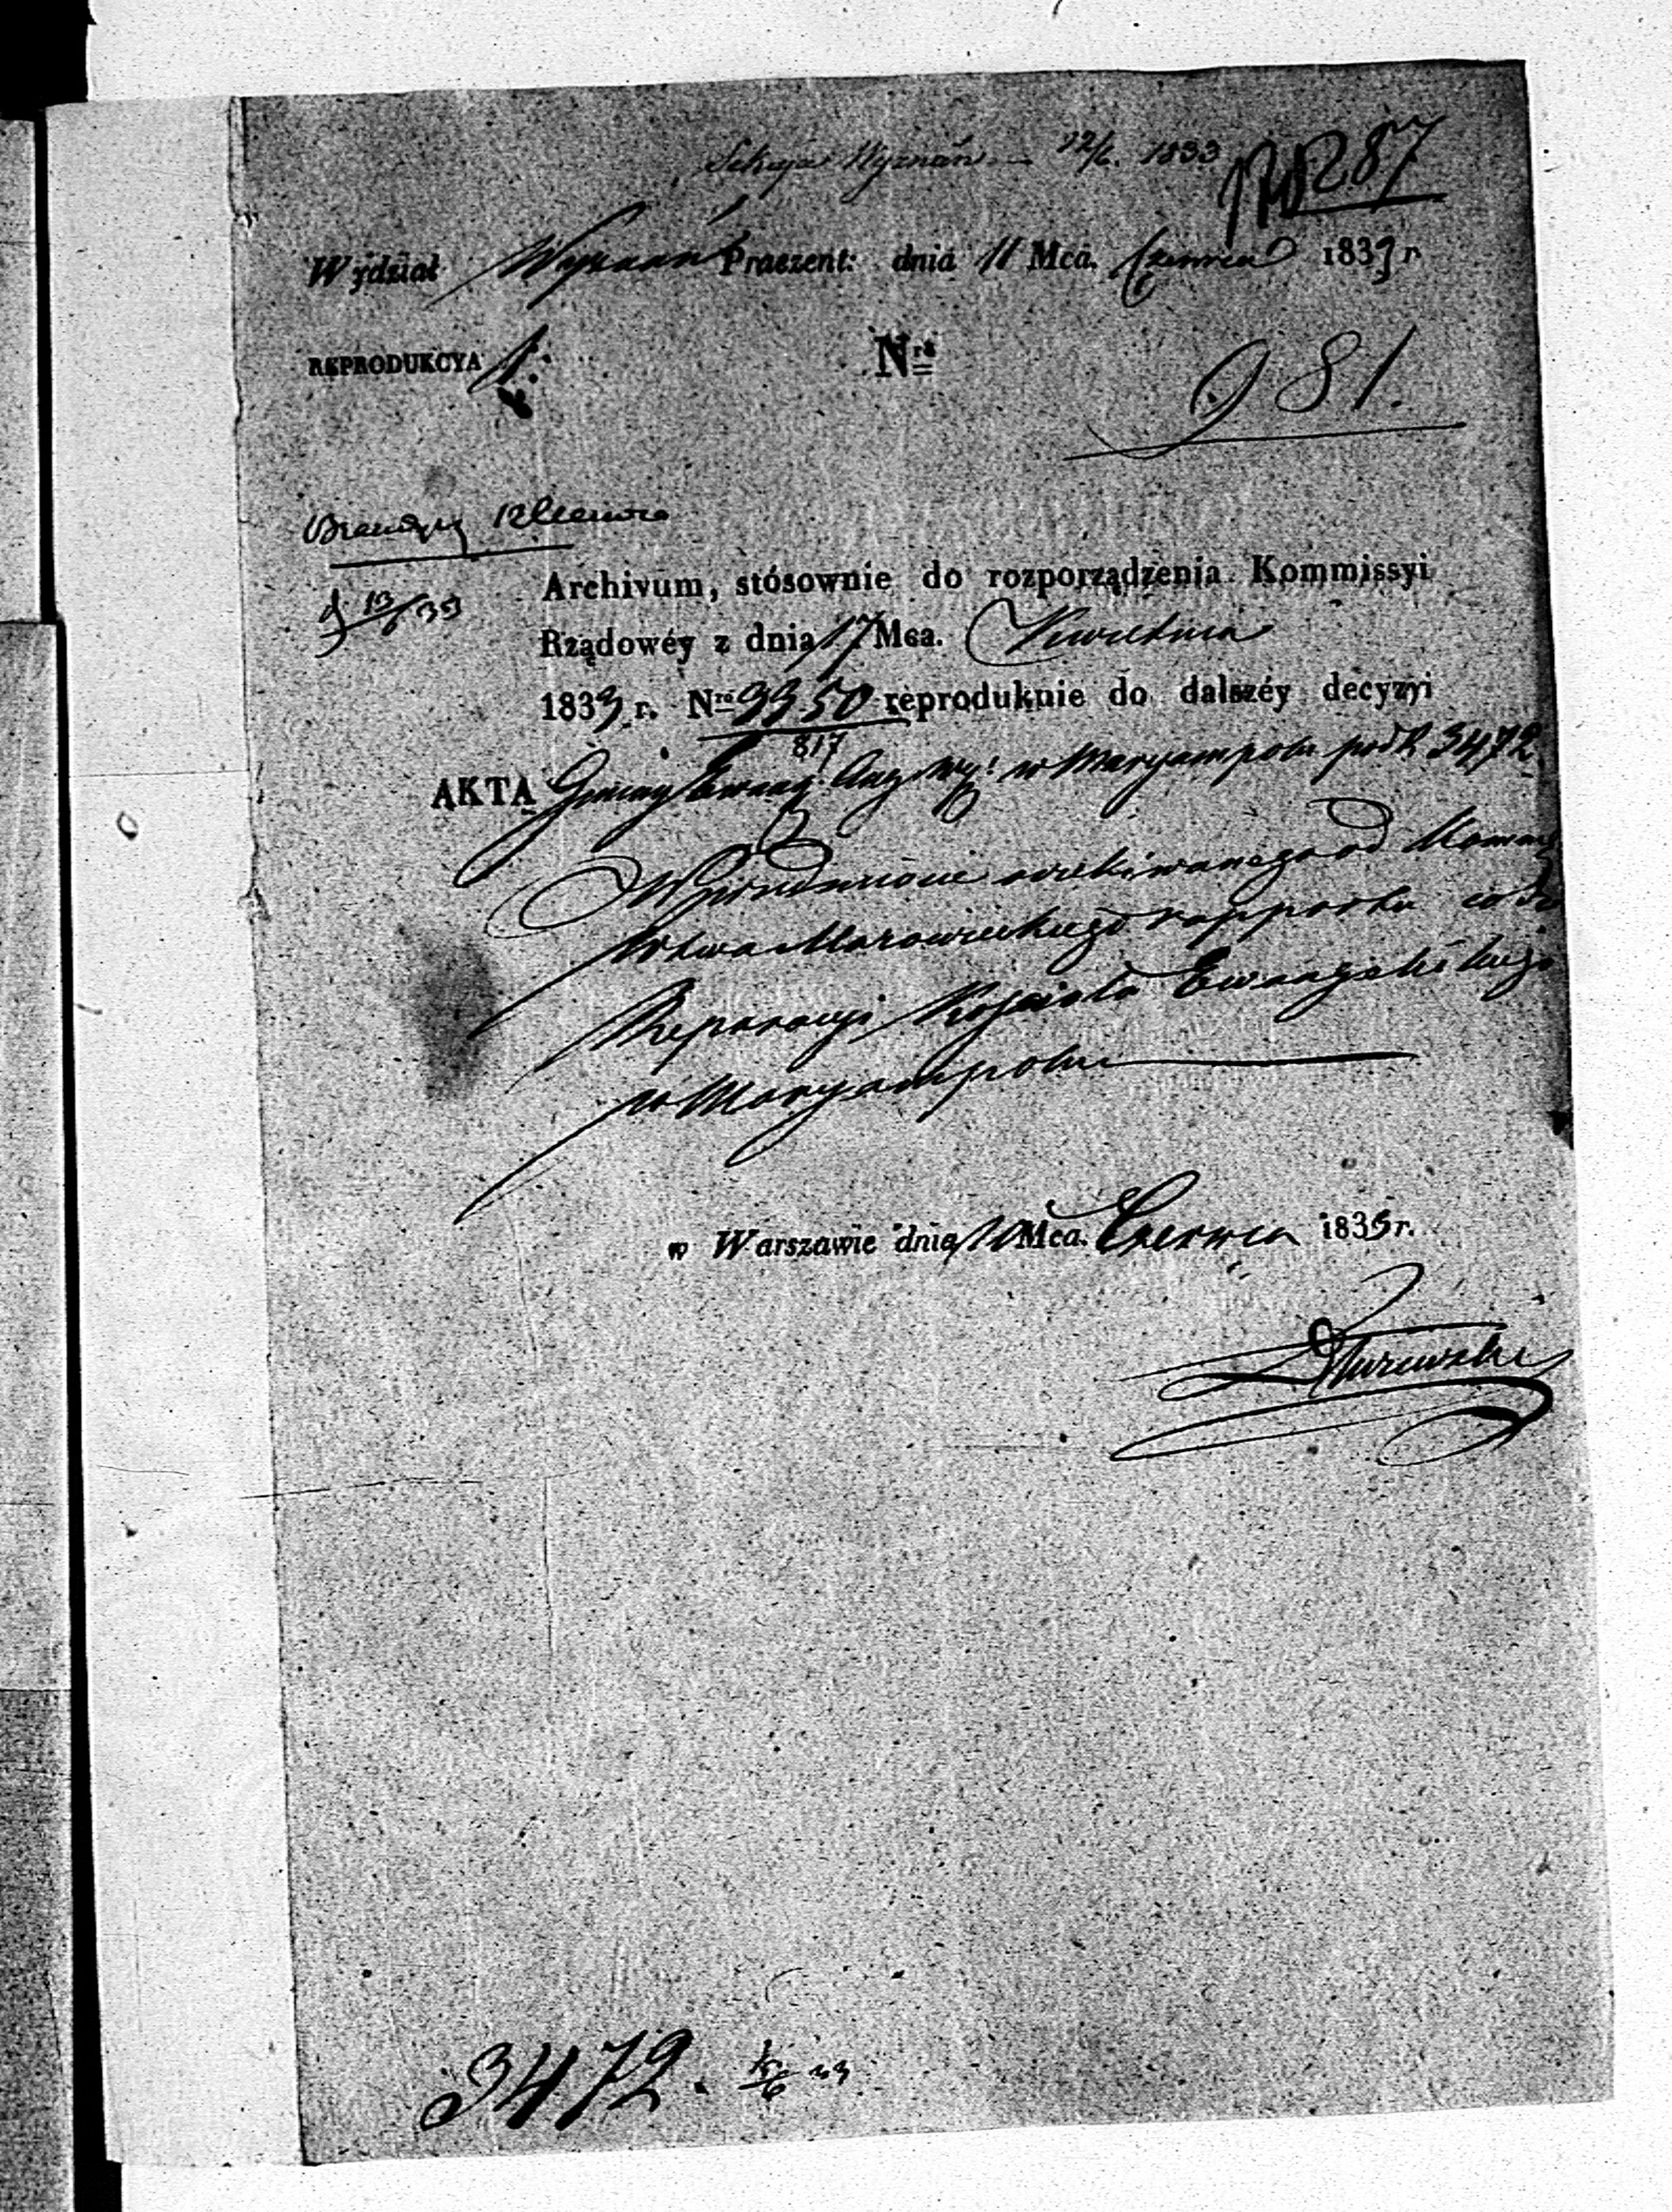 Sekcja Wyznań — 12/6. 1833
287
Wydział Wyznań Praezent: dnia 11 Mca. Czerwca 1833 r.
REPRODUKCYA 1. Nro
981.
13/6 33
Archivum, stósownie do rozporządzenia Kommissyi
Rządowéy z dnia 17 Mca. Kwietnia
1833 r. Nro 3350 reprodukuie do dalszéy decyzyi
817
AKTA Gminy Ewang. Aug. Wyz: w Maryampolu pod N 3472
W przedmiocie oczekiwanego od Kommis
Wtwa Mazowieckiego rapportu co do
Reparacyi Kościoła Ewangelickiego
w Maryampolu
w Warszawie dnia 10 Mca. Czerwca 1833 r.
3472. 33